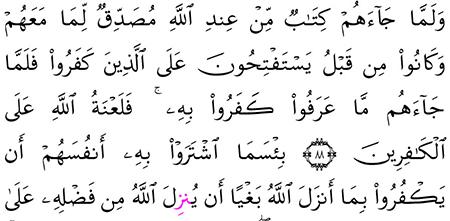 وَلَمَّا جَآءَهُمْ كِتَـٰبٌ مِّنْ عِندِ ٱللَّهِ مُصَدِّقٌ لِّمَا مَعَهُمْ
وَكَانُوا۟ مِن قَبْلُ يَسْتَفْتِحُونَ عَلَى ٱلَّذِينَ كَفَرُوا۟ فَلَمَّا
جَآءَهُم مَّا عَرَفُوا۟ كَفَرُوا۟ بِهِۦ ۚ فَلَعْنَةُ ٱللَّهِ عَلَى
ٱلْكَـٰفِرِينَ ۝٨٨ بِئْسَمَا ٱشْتَرَوْا۟ بِهِۦٓ أَنفُسَهُمْ أَن
يَكْفُرُوا۟ بِمَآ أَنزَلَ ٱللَّهُ بَغْيًا أَن يُنزِلَ ٱللَّهُ مِن فَضْلِهِۦ عَلَىٰ